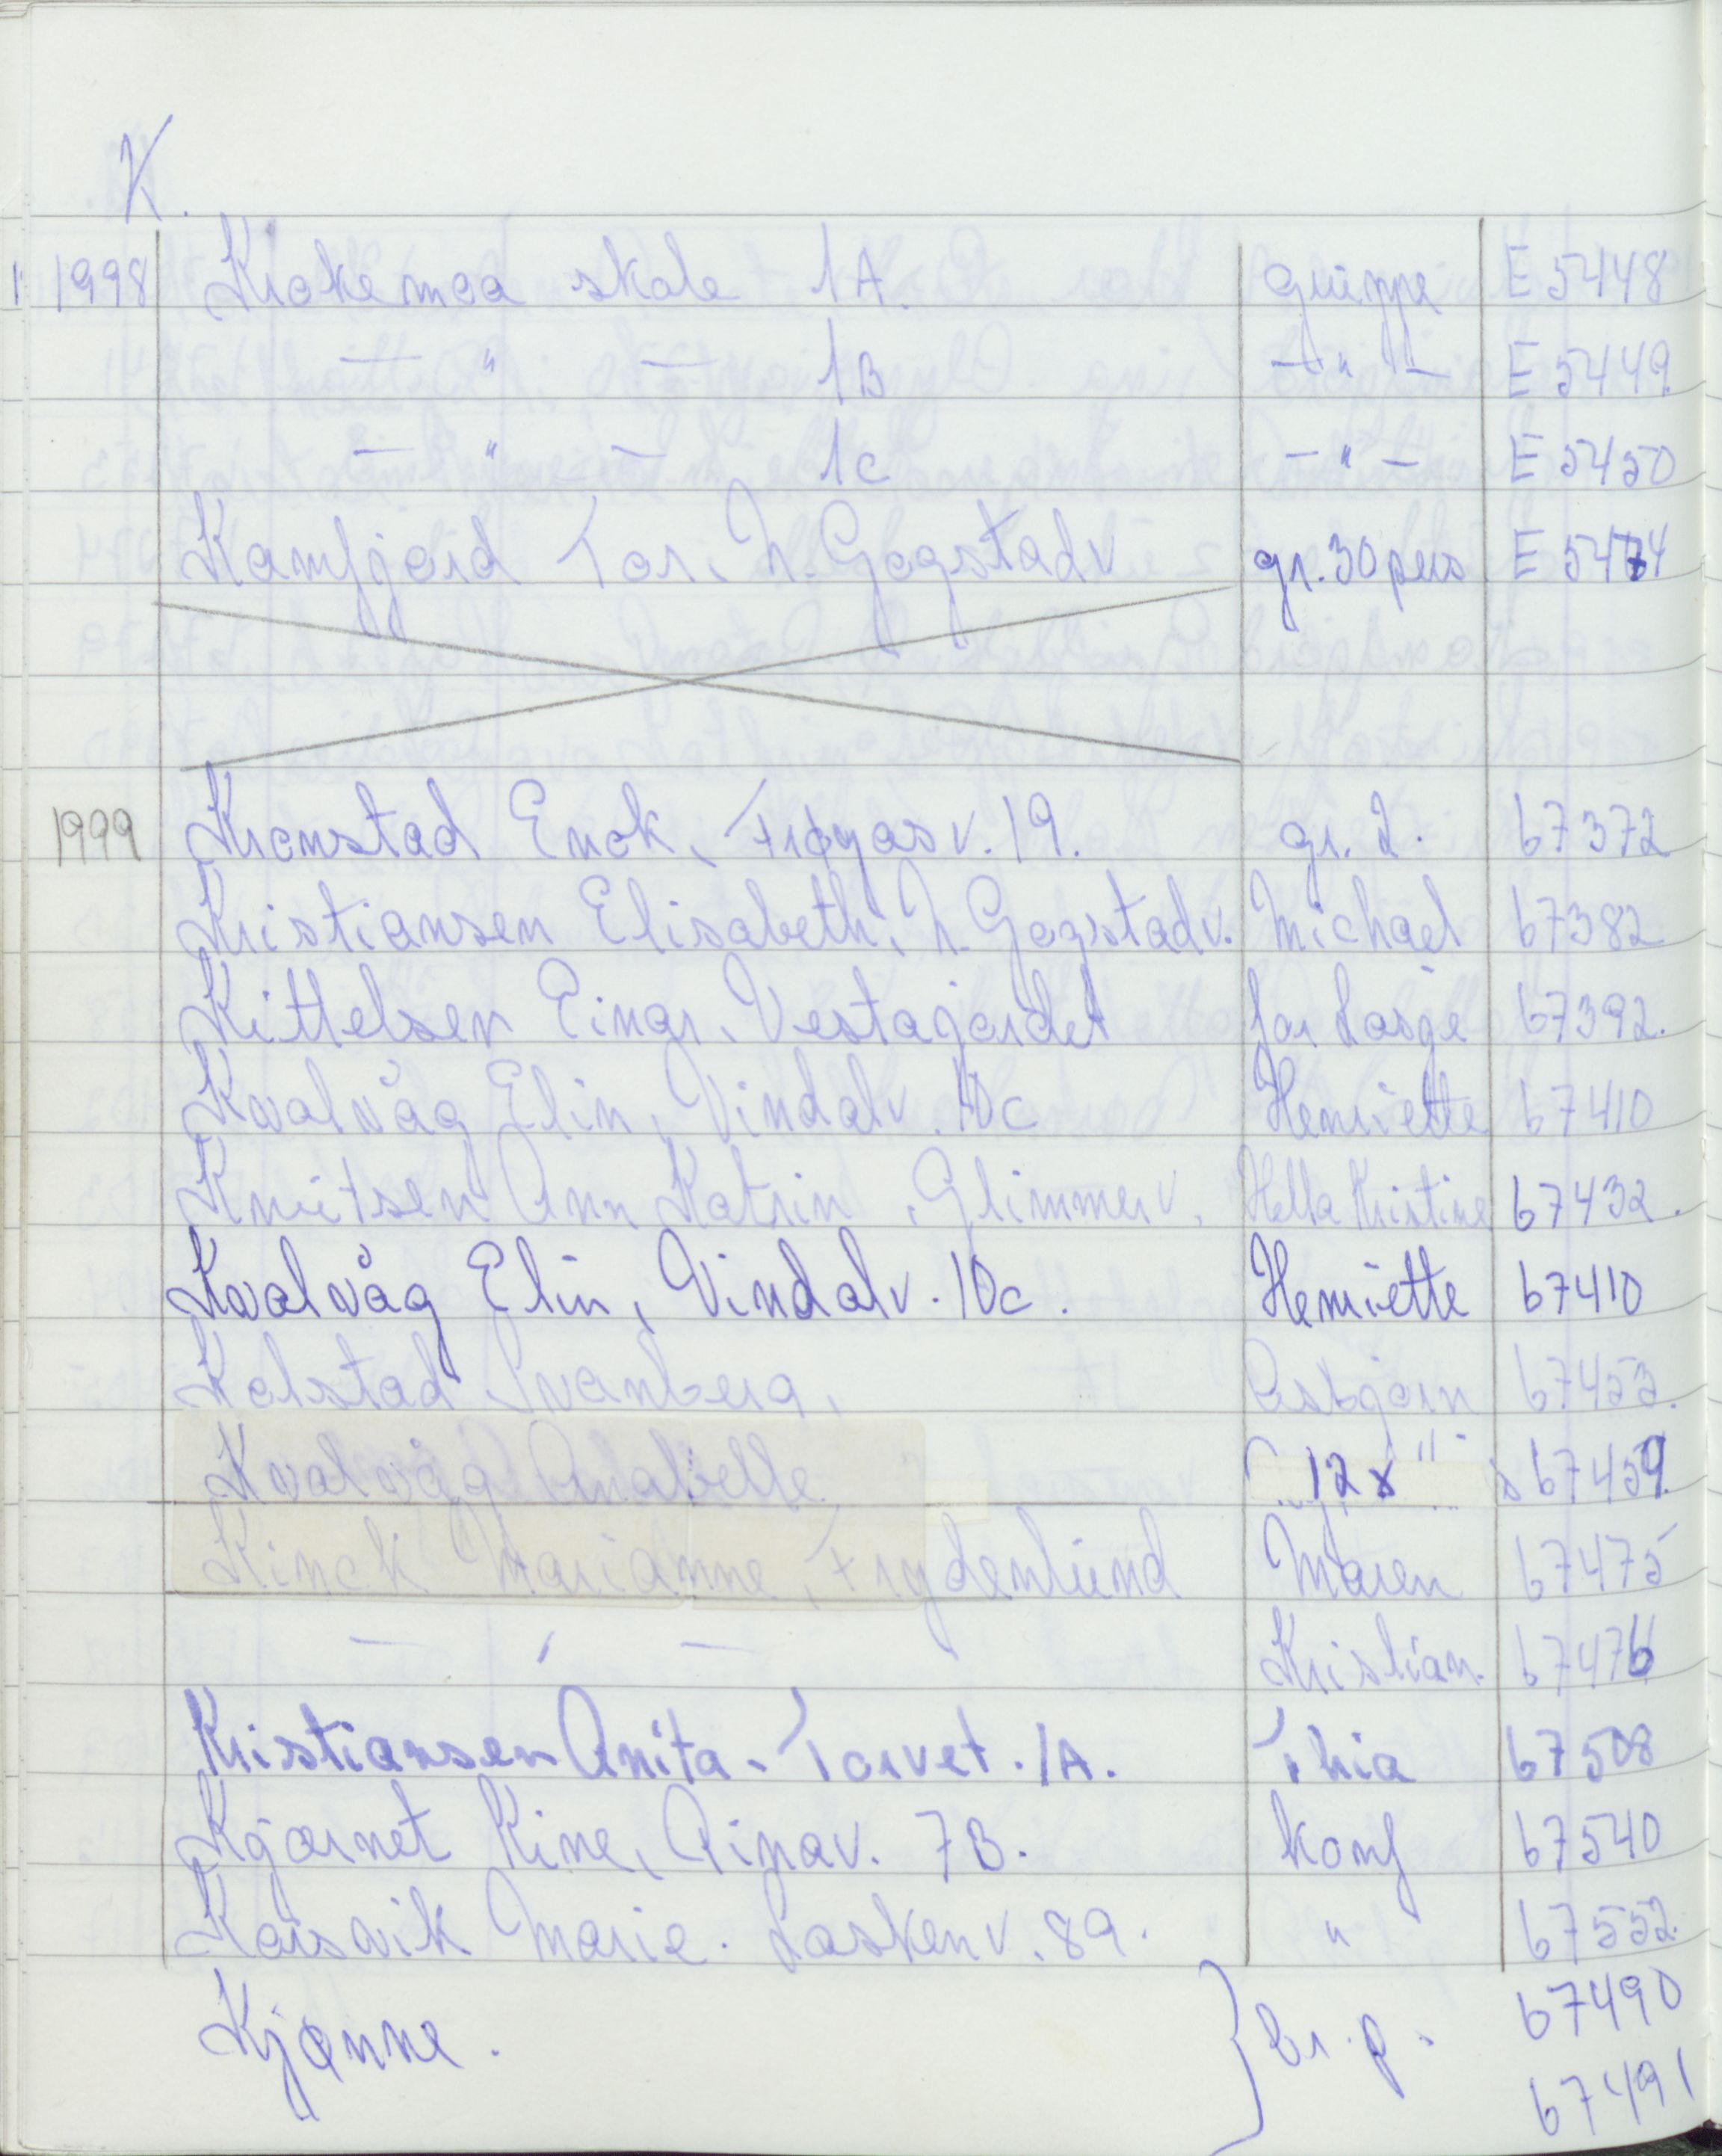 K.
1998 Krokemoa skole 1A. gruppe E 5448
— " — 1B — " — E 5449
— " — 1C — " — E 5450
Kamfjord Tor, N. Gogstadv gr. 30 pers E 5474
1999 Kronstad Enok, Frøyas v. 19. gr. 2. 67372
Kristiansen Elisabeth, N. Gogstadv. Michael 67382
Kittelsen Einar, Vestagjordet 67392.
Kvalvåg Elin, Vindalv. 10c Henriette 67410
Knutsen Ann Katrin, Glimmerv. Hella Kristine 67432.
Kvalvåg Elin, Vindalv. 10c. Henriette 67410
Kolstad Svanberg, Asbjørn 67453.
Kvalvåg Anabelle 12x" 67459.
Kinck Marianne, Frydenlund Maren 67475
— " — Kristian. 67476
Kristiansen Anita. Torvet. 1A. Thia 67508
Kjærnet Kine, Ringv. 7B. konf 67540
Korsvik Marie. Laskenv. 89. " 67552.
Kjønne. } br. p. 67490
67491